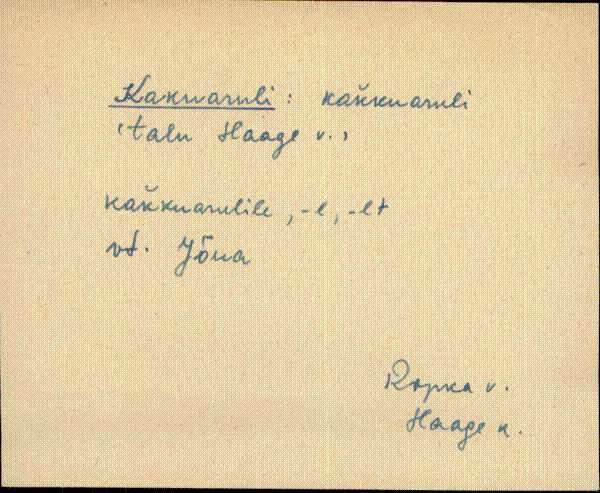 Kakuaruli : kak̆kuaruli
'talu Haage v.,
kak̆kuarulile, -l, -lt
vt. Jõua
Ropka v.
Haage k.